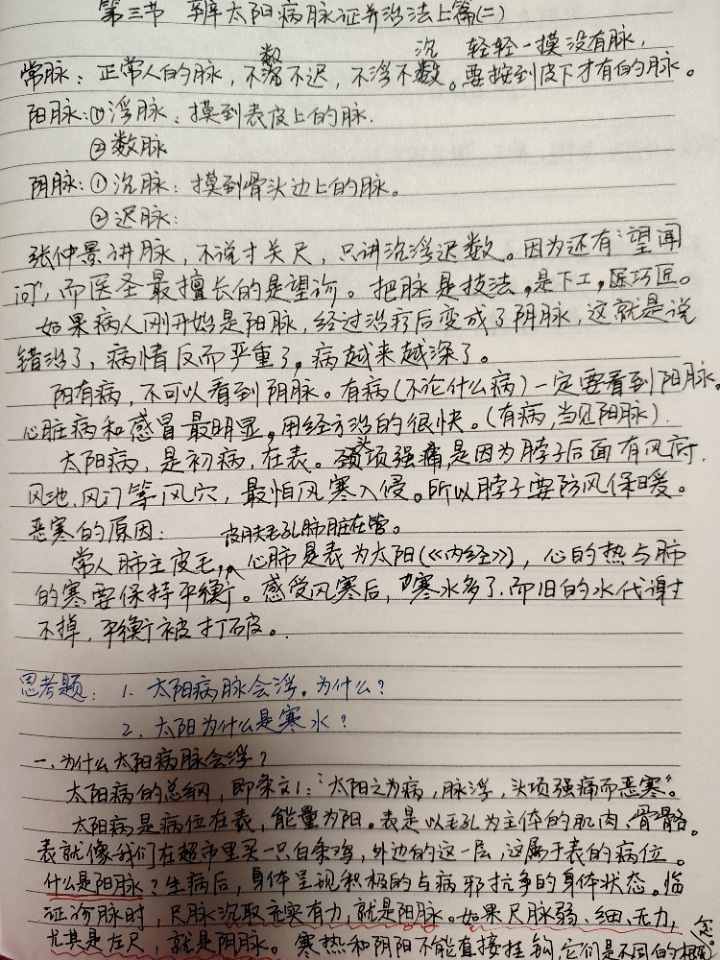 第三节 辨太阳病脉证并治法上篇(二)
常脉：正常人的脉，不数不迟，不浮不沉。轻轻一摸没有脉，要按到皮下才有的脉。
阳脉：①浮脉：摸到表皮上的脉.
②数脉
阴脉：①沉脉：摸到骨头边上的脉。
②迟脉：
张仲景讲脉，不说寸关尺，只讲沉浮迟数。因为还有“望闻
问”，而医圣最擅长的是望诊。把脉是技法，是下工，医巧匠。
如果病人刚开始是阳脉，经过治疗后变成了阴脉，这就是说
错治了，病情反而严重了，病越来越深了。
阳有病，不可以看到阴脉。有病(不论什么病)一定要看到阳脉。
心脏病和感冒最明显。用经方治的很快。(有病，当见阳脉).
太阳病，是初病，在表。头项强痛，是因为脖子后面有风府.
风池.风门等风穴，最怕风寒入侵。所以脖子要防风保暖。
恶寒的原因：
常人肺主皮毛，皮肤毛孔肺脏在管。心肺是表为太阳(《内经》)，心的热与肺
的寒要保持平衡。感受风寒后，寒水多了.而旧的水代谢
不掉，平衡被打破。
思考题：1. 太阳病脉会浮。为什么？
2. 太阳为什么是寒水？
一.为什么太阳病脉会浮？
太阳病的总纲，即条文1：“太阳之为病，脉浮，头项强痛而恶寒”。
太阳病是病位在表，能量为阳。表是以毛孔为主体的肌肉、骨骼。
表就像我们在超市里买一只白条鸡，外边的这一层，这属于表的病位。
什么是阳脉？生病后，身体呈现积极的与病邪抗争的身体状态。临
证诊脉时，尺脉沉取充实有力，就是阳脉。如果尺脉弱、细、无力，
尤其是左尺，就是阴脉。寒热和阴阳不能直接挂钩，它们是不同的概念。